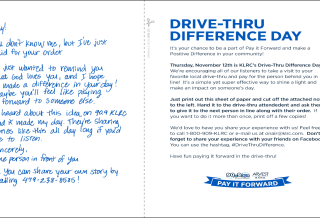 y!
u don't know me, but I've just
aid for your order
just wanted to remind you
hat God loves you, and I hope
made a difference in your day!
aybe you'll feel like paying
forward to someone else.
heard about this idea on 90.9 KLRC
nd it made my day. They're sharing
ories like this all day long if you'd
e to listen.
incerely,
he person in front of you
You can share your own story by
alling 479-238-8585!
DRIVE-THRU
DIFFERENCE DAY
It's your chance to be a part of Pay It Forward and make a
Positive Difference in your community!
Thursday, November 12th is KLRC's Drive-Thru Difference Day
We're encouraging all of our listeners to take a visit to your
favorite local drive-thru and pay for the person behind you in
line! It's a simple yet super effective way to shine a light and
make an impact on someone's day.
Just print out this sheet of paper and cut off the attached no
to the left. Hand it to the drive-thru attendendent and ask the
to give it to the next person in line along with their order. If
you want to do it more than once, print off a few copies!
We'd love to have you share your experience with us! Feel free
to call 1-800-909-KLRC or e-mail us at onair@klrc.com. Don't
forget to share your experience with friends on Facebook
You can use the hashtag, #DriveThruDifference.
Have fun paying it forward in the drive-thru!
PAY IT FORWARD